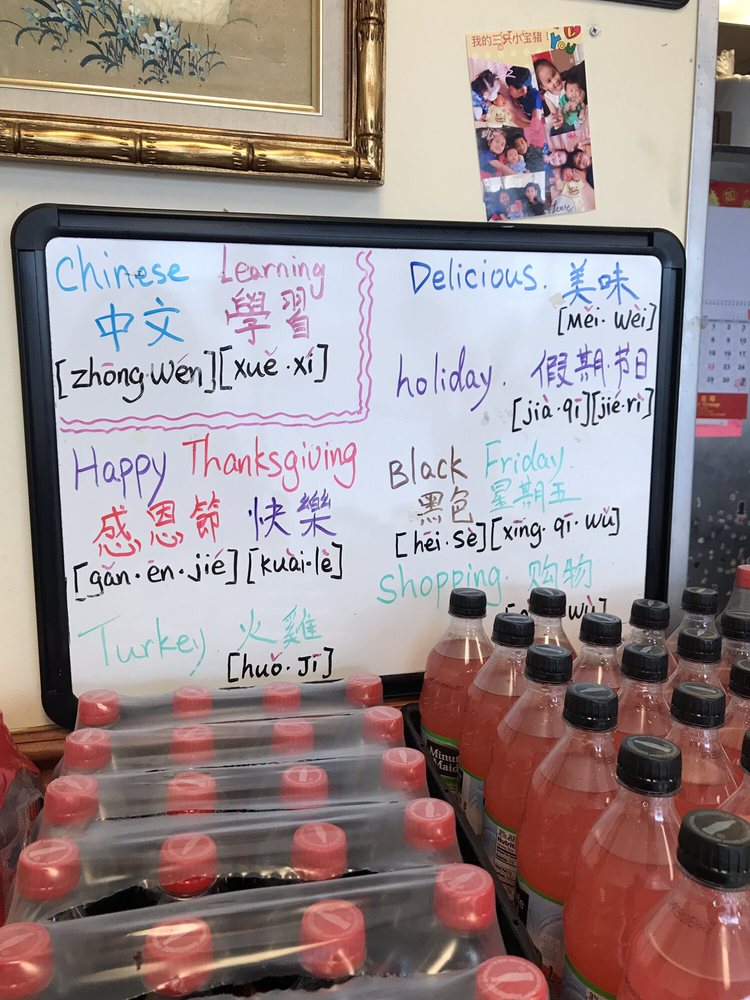 我的三只小宝猪!
Chinese Learning
中文 學習
[zhōng·wén][xuě·xí]
Happy Thanksgiving
感恩節 快樂
[gǎn·ēn·jié][kuài·lè]
Turkey 火雞
[huǒ·Jī]
Delicious. 美味
[Měi·Wèi]
holiday. 假期·节日
[jià·qī][jié·rì]
Black Friday.
黑色 星期五
[hēi·sè][xīng·qī·wǔ]
Shopping. 购物
wù]
Minute
Maid